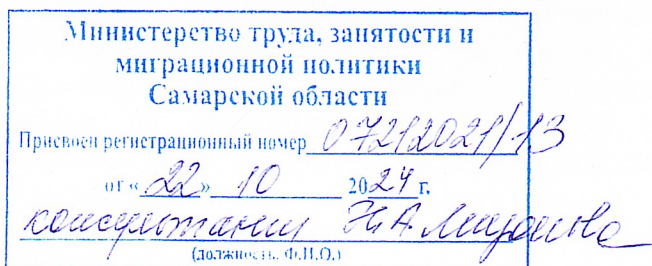 Министерство труда, занятости и
миграционной политики
Самарской области
Присвоен регистрационный номер 07212021/-13
от «22» 10 2024 г.
консультант Н.А.
(должность, Ф.И.О.)